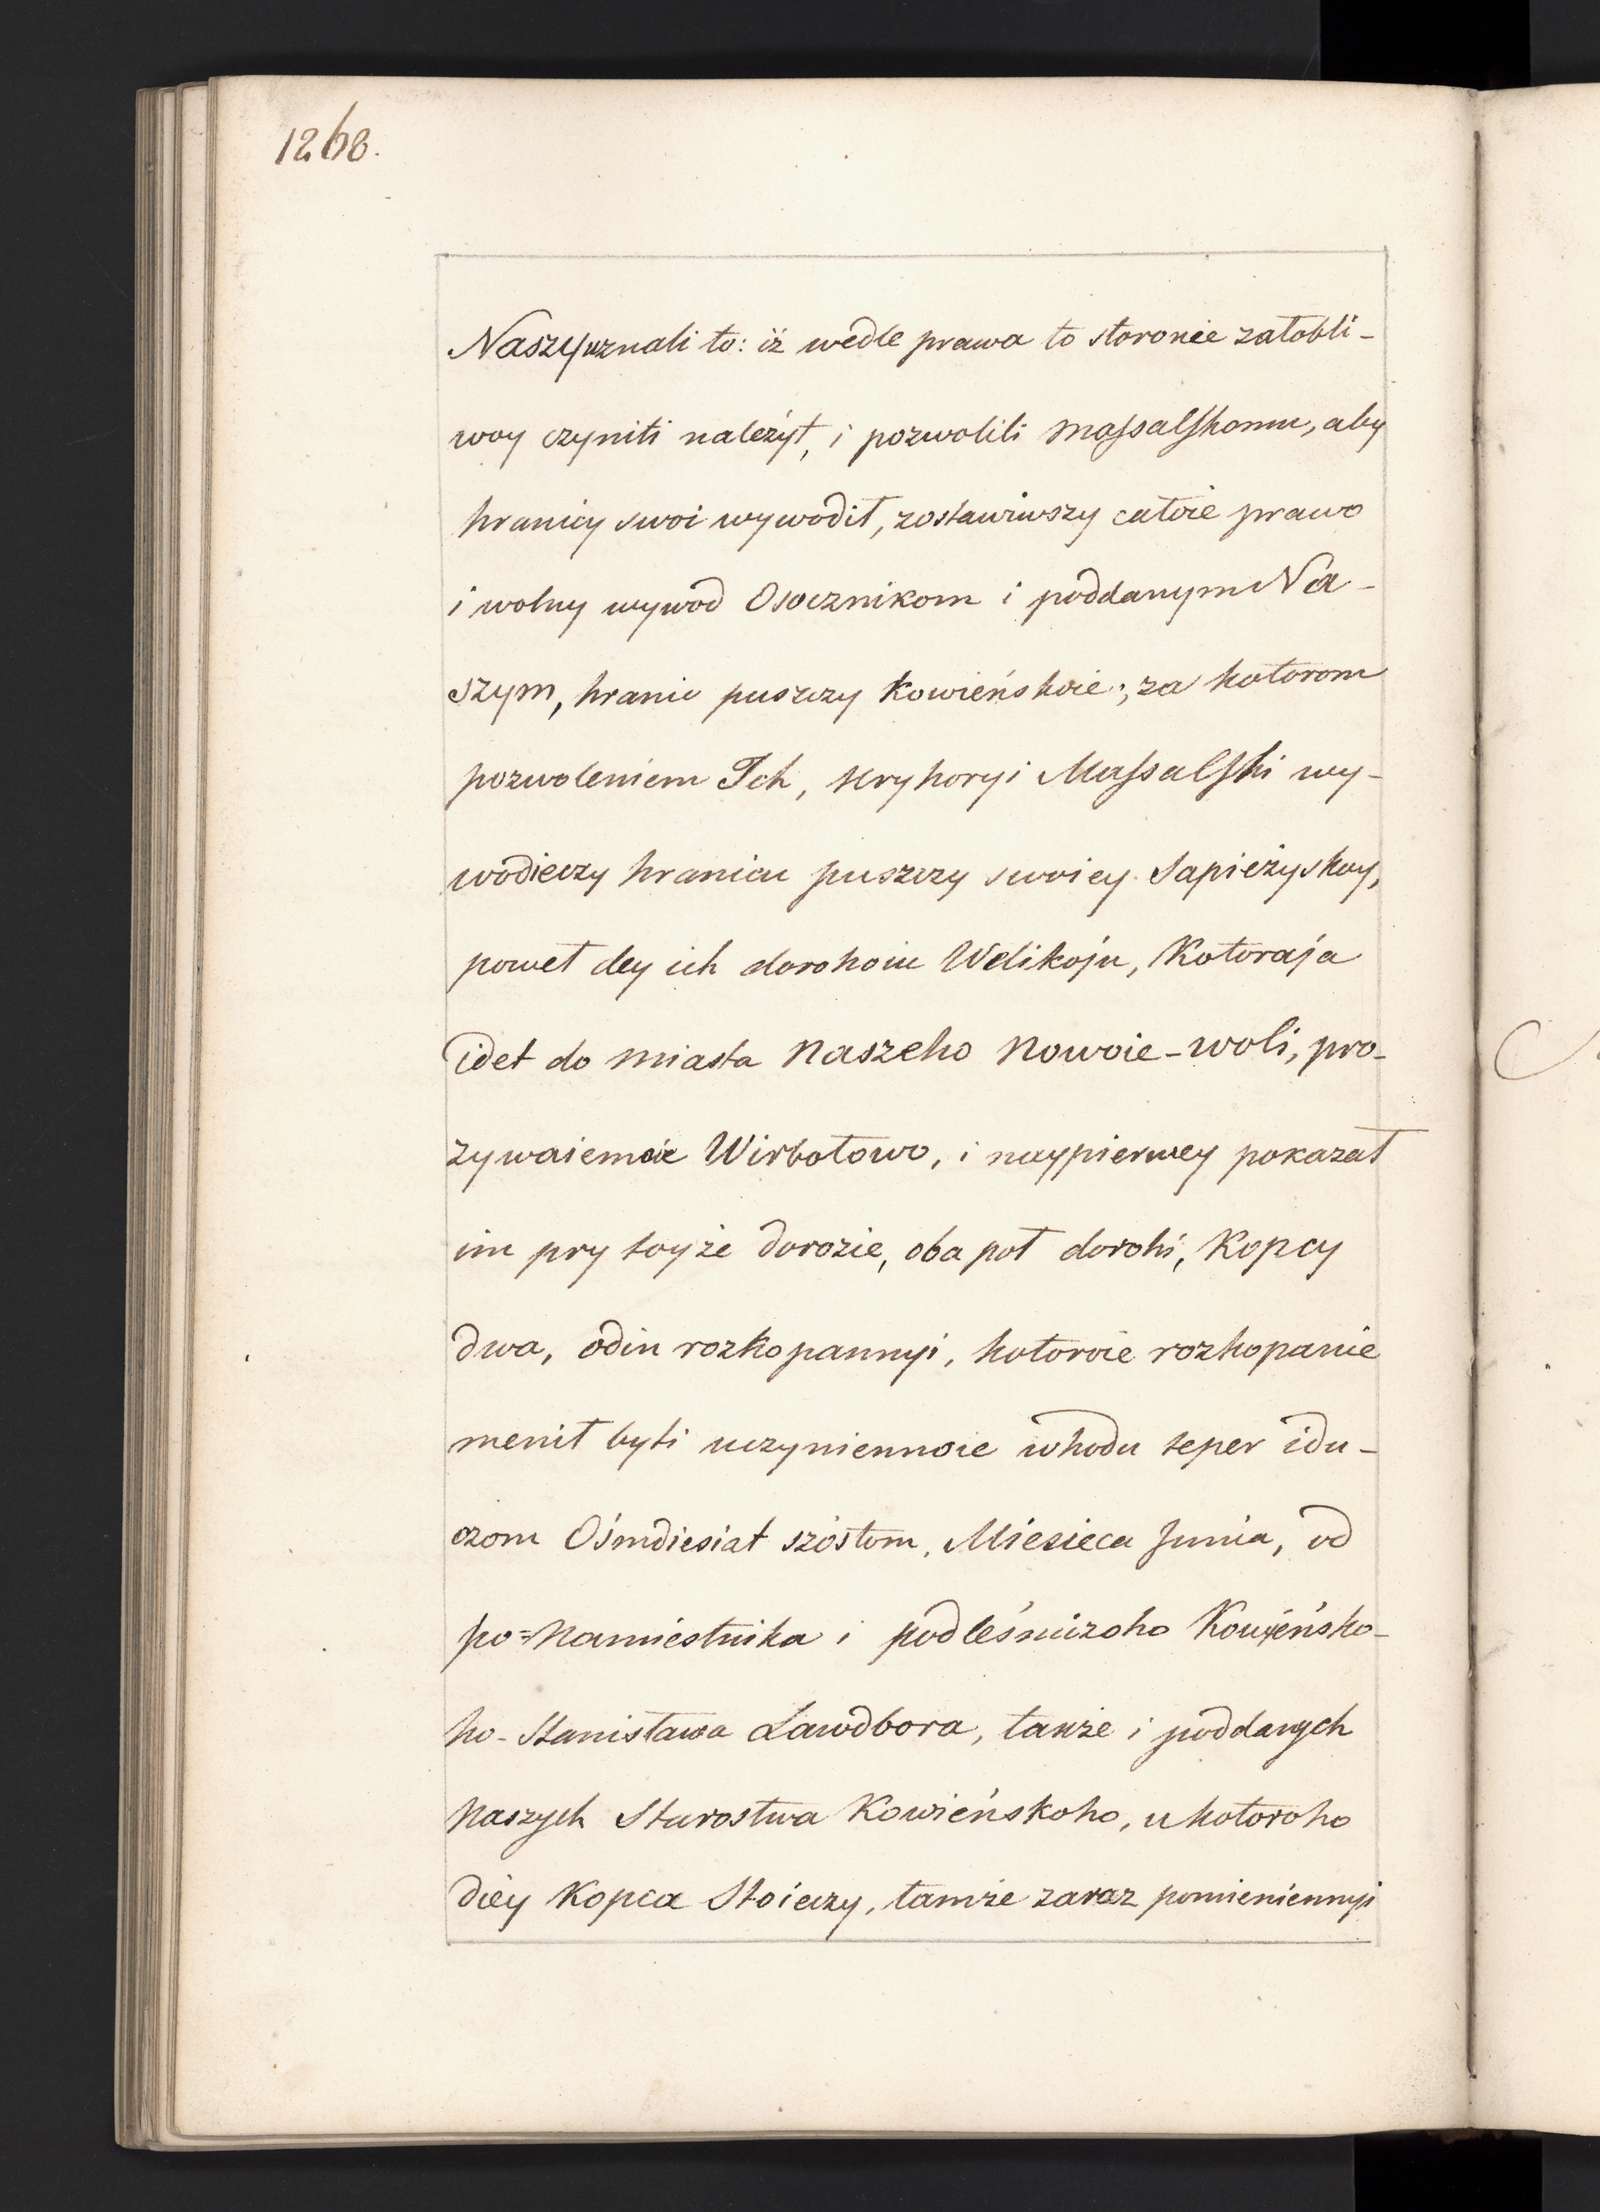 1268.
Naszy uznali to: iż wedle prawa to storonie załobli-
woy czyniti należyt, i pozwolili Massalskomu, aby
hranicy swoi wywodił, zostawiwszy całoie prawo
i wolny wywod Osocznikom i poddanym Na-
szym, hranic puszczy Kowieńskoie; za kotorom
pozwoleniem Ich, Hryhoryi Massalski wy-
wodieczy hranicu puszczy swoiey Sapieżyskoy,
poweł dey ich dorohoiu Welikoju, Kotoraja
idet do miasta Naszeho Nowoie-woli, pro-
zywaiemoie Wirbołowo, i naypierwey pokazał
im pry toyże dorozie, oba poł dorohi, Kopcy
dwa, odin rozkopannyi, kotoroie rozkopanie
menił byti uczyniennoie w hodu teper idu-
czom Ośmdiesiat szóstom, Miesieca Junia, od
po=Namiestnika i podleśniczoho Kowieńsko-
ho - Stanisława Lawdbora, także i poddanych
Naszych Starostwa Kowieńskoho, u kotoroho
diey Kopca Stoieczy, tamże zaraz pomieniennyi